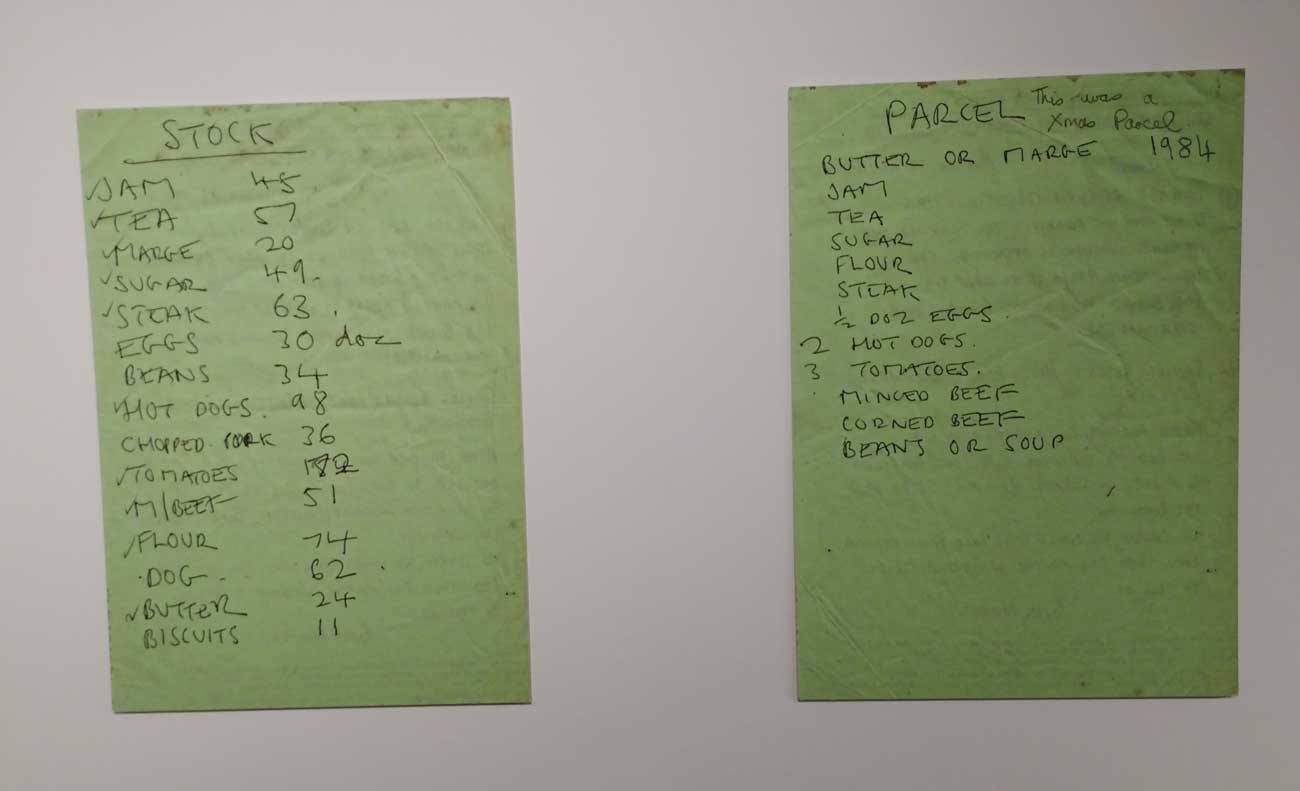 STOCK
✓JAM 45
✓TEA 57
✓MARGE 20
✓SUGAR 49.
✓STEAK 63
EGGS 30 doz
BEANS 34
✓HOT DOGS. 98
CHOPPED PORK 36
✓TOMATOES
✓M/BEEF 51
✓FLOUR 74
DOG. 62
✓BUTTER 24
BISCUITS 11
PARCEL This was a
Xmas Parcel
BUTTER OR MARGE 1984
JAM
TEA
SUGAR
FLOUR
STEAK
½ DOZ EGGS.
2 HOT DOGS.
3 TOMATOES.
MINCED BEEF
CORNED BEEF
BEANS OR SOUP